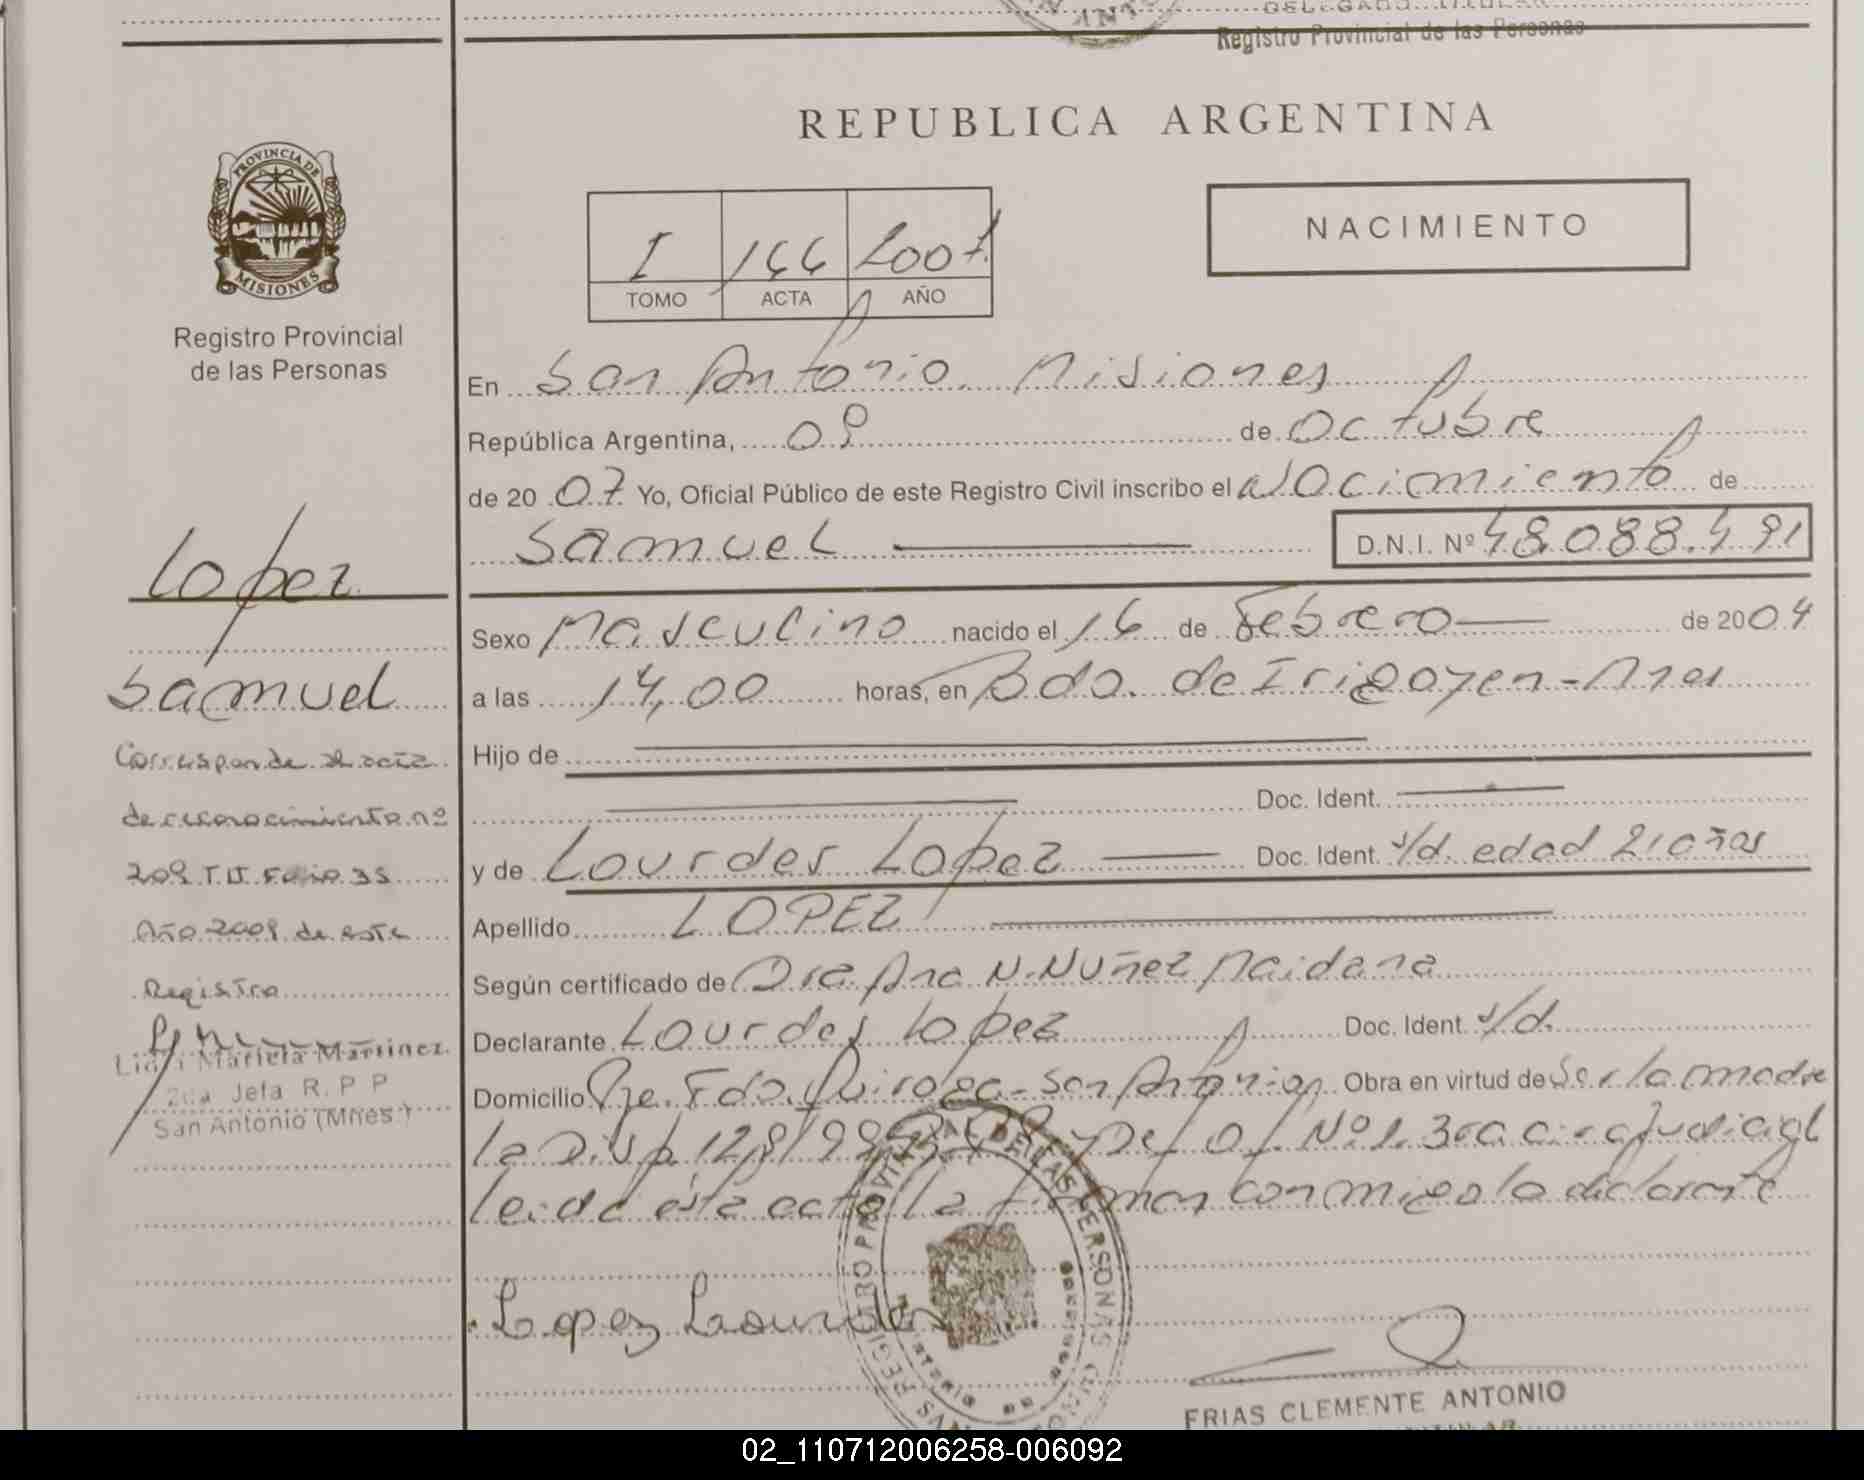 DELEGADO TITULAR
Registro Provincial de las Personas
PROVINCIA DE
MISIONES
Registro Provincial
de las Personas
REPUBLICA ARGENTINA
NACIMIENTO
I 166 2007
TOMO ACTA AÑO
En San Antonio Misiones
República Argentina, 09 de Octubre
de 2007 Yo, Oficial Público de este Registro Civil inscribo el Nacimiento de
Samuel D.N.I. Nº 48.088.491
Sexo Masculino nacido el 16 de Febrero de 2004
a las 14,00 horas, en Bdo. de Irigoyen - Mnes
Hijo de
Doc. Ident.
y de Lourdes Lopez Doc. Ident. s/d. edad 21 años
Apellido LOPEZ
Según certificado de Dra. Ana N. Nuñez Maidana
Declarante Lourdes Lopez Doc. Ident. s/d.
Domicilio Fdo. Quiroga - San Antonio Obra en virtud de Ser la madre
la Disp. Nº 1. 3ra
leida esta acta la firman conmigo la declarante
Lopez Lourdes
FRIAS CLEMENTE ANTONIO
Lopez
Samuel
Corresponde al acta
de reconocimiento nº
209 Folio 35
Año 2009 de este
Registro
Mariela Martinez
2da Jefa R. P P
San Antonio (Mnes.)
02_110712006258-006092